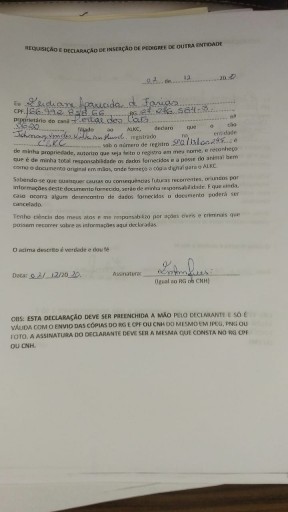 REQUISIÇÃO E DECLARAÇÃO DE INSERÇÃO DE PEDIGREE DE OUTRA ENTIDADE
02 de 12 20 20
Eu Aparecida de Farias
CPF
proprietário do canil dos
filiado ao ALKC, declaro que o cão
registrado na entidade
CLKC, sob o número de registro , é
de minha propriedade, autorizo que seja feito o registro em meu nome, e reconheço
que é de minha total responsabilidade os dados fornecidos e a posse do animal bem
como o documento original em mãos, onde forneço a cópia digital para o ALKC.
Sabendo-se que quaisquer causas ou consequências futuras recorrentes, oriundos por
informações deste documento fornecido, serão de minha responsabilidade. E que ainda,
caso ocorra algum desencontro de dados fornecidos o documento poderá ser
cancelado.
Tenho ciência dos meus atos e me responsabilizo por ações cíveis e criminais que
possam recorrer sobre as informações aqui declaradas.
O acima descrito é verdade e dou fé
Data: 02/12/2020. Assinatura:
(Igual ao RG ou CNH)
OBS: ESTA DECLARAÇÃO DEVE SER PREENCHIDA A MÃO PELO DECLARANTE E SÓ É
VÁLIDA COM O ENVIO DAS CÓPIAS DO RG E CPF OU CNH DO MESMO EM JPEG, PNG OU
FOTO. A ASSINATURA DO DECLARANTE DEVE SER A MESMA QUE CONSTA NO RG CPF
OU CNH.